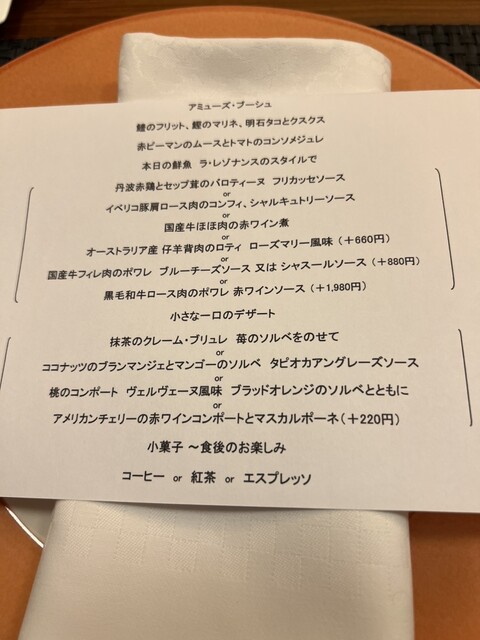 アミューズ・ブーシュ
鱧のフリット、鰹のマリネ、明石タコとクスクス
赤ピーマンのムースとトマトのコンソメジュレ
本日の鮮魚 ラ・レゾナンスのスタイルで
丹波赤鶏とセップ茸のバロティーヌ フリカッセソース
or
イベリコ豚肩ロース肉のコンフィ、シャルキュトリーソース
or
国産牛ほほ肉の赤ワイン煮
or
オーストラリア産 仔羊背肉のロティ ローズマリー風味（＋660円）
or
国産牛フィレ肉のポワレ ブルーチーズソース 又は シャスールソース（＋880円）
or
黒毛和牛ロース肉のポワレ 赤ワインソース（＋1,980円）
小さな一口のデザート
抹茶のクレーム・ブリュレ 苺のソルベをのせて
or
ココナッツのブランマンジェとマンゴーのソルベ タピオカアングレーズソース
or
桃のコンポート ヴェルヴェーヌ風味 ブラッドオレンジのソルベとともに
or
アメリカンチェリーの赤ワインコンポートとマスカルポーネ（＋220円）
小菓子 ～食後のお楽しみ
コーヒー or 紅茶 or エスプレッソ